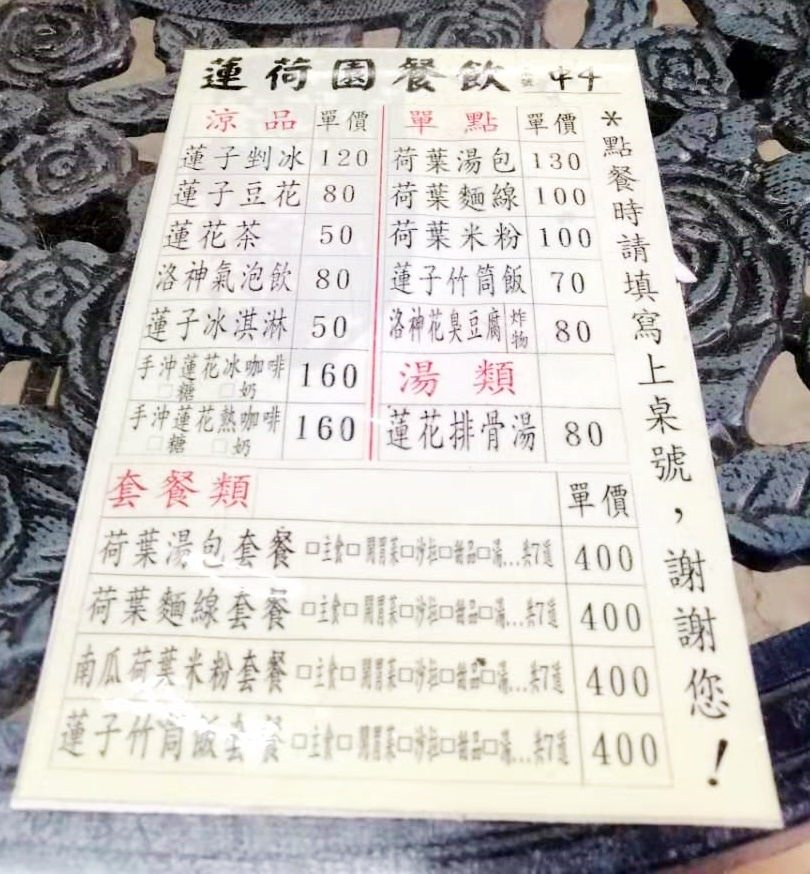 蓮荷園餐飲 號 中4
涼品 單價
蓮子剉冰 120
蓮子豆花 80
蓮花茶 50
洛神氣泡飲 80
蓮子冰淇淋 50
手沖蓮花冰咖啡 160
□糖 □奶
手沖蓮花熱咖啡 160
□糖 □奶
單點 單價
荷葉湯包 130
荷葉麵線 100
荷葉米粉 100
蓮子竹筒飯 70
洛神花臭豆腐 炸物 80
湯類
蓮花排骨湯 80
套餐類 單價
荷葉湯包套餐 □主食□開胃菜□沙拉□甜品□湯...共7道 400
荷葉麵線套餐 □主食□開胃菜□沙拉□甜品□湯...共7道 400
南瓜荷葉米粉套餐 □主食□開胃菜□沙拉□甜品□湯...共7道 400
蓮子竹筒飯套餐 □主食□開胃菜□沙拉□甜品□湯...共7道 400
*點餐時請填寫上桌號，謝謝您！